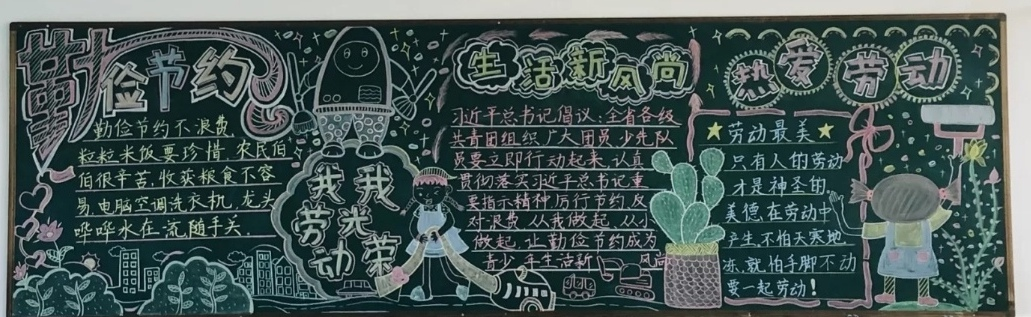 勤俭节约
勤俭节约不浪费
粒粒米饭要珍惜.农民伯
伯很辛苦.收获粮食不容
易.电脑空调洗衣机.龙头
哗哗水在流随手关.
我劳动
我光荣
生活新风尚
习近平总书记倡议:全省各级
共青团组织广大团员少先队
员要立即行动起来.认真
贯彻落实习近平总书记重
要指示精神厉行节约反
对浪费.从我做起.从小
做起.让勤俭节约成为
青少年生活新风尚
热爱劳动
★劳动最美★
只有人的劳动
才是神圣的
美德.在劳动中
产生.不怕天寒地
冻.就怕手脚不动
要一起劳动!